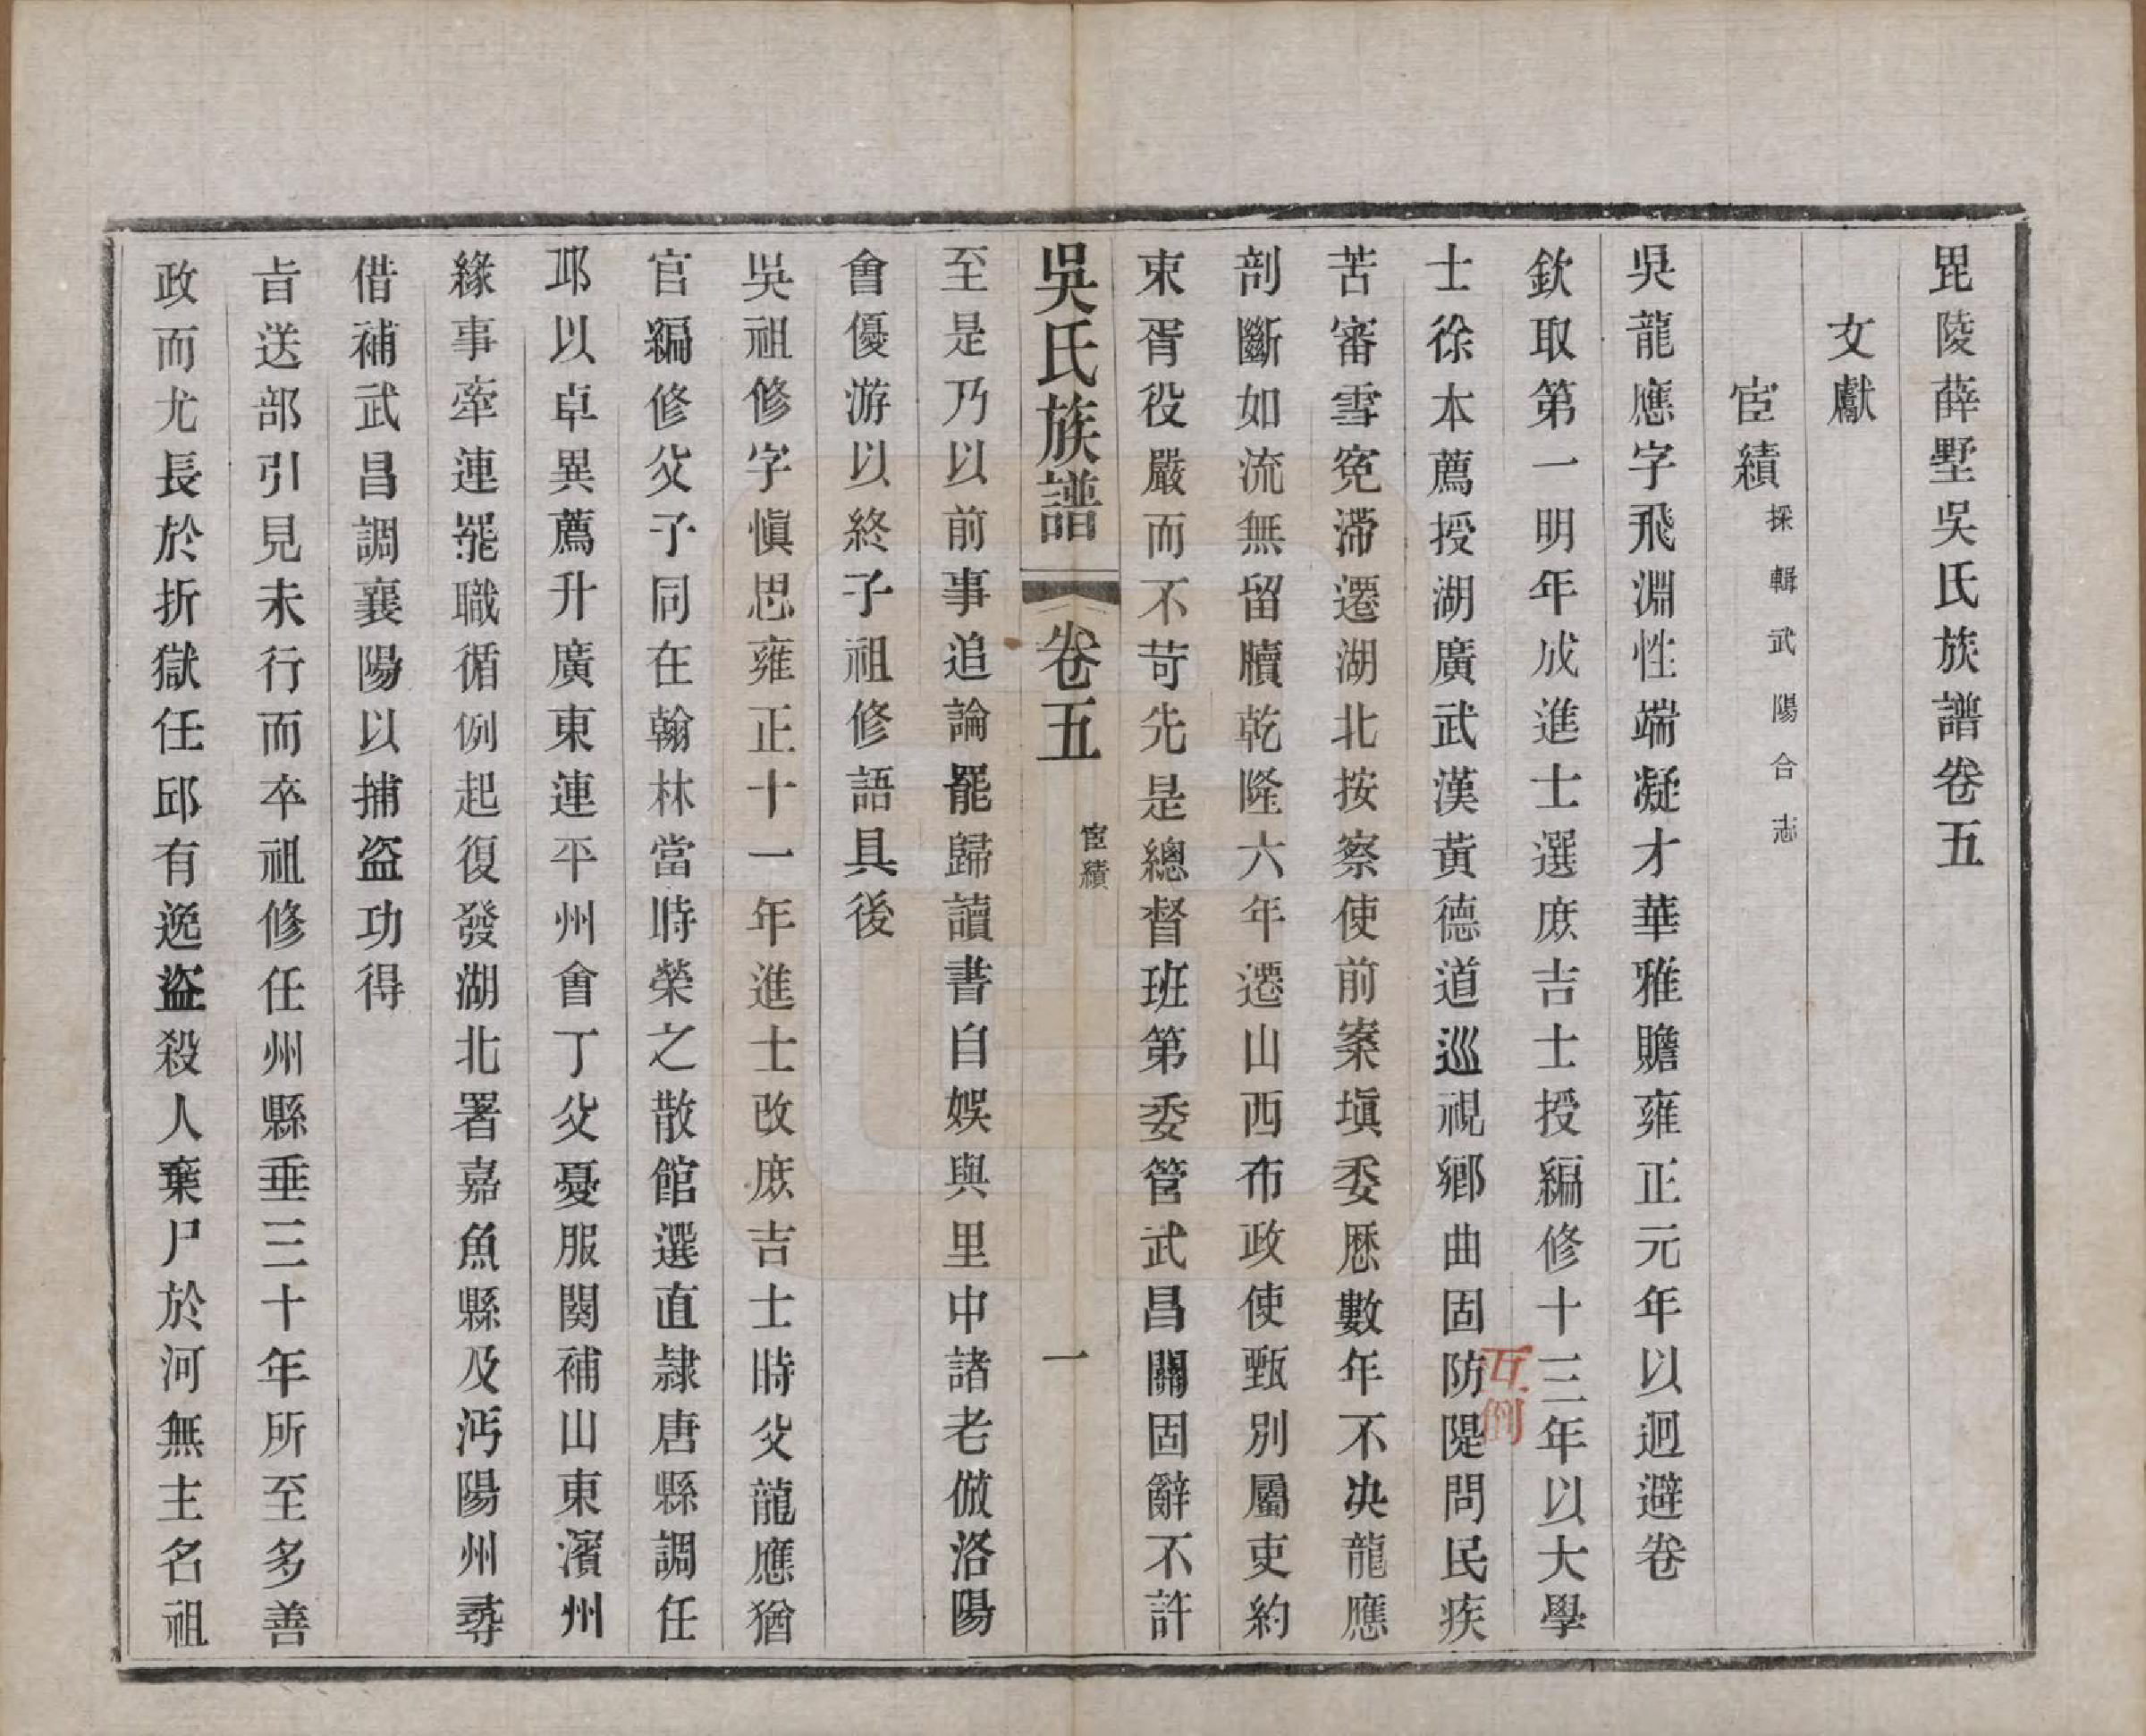 毘陵薛墅吳氏族譜卷五
文獻
宦績採輯武陽合志
吳龍應字飛淵性端凝才華雅贍雍正元年以迴避卷
欽取第一明年成進士選庶吉士授編修十三年以大學
士徐本薦授湖廣武漢黃德道巡視鄉曲固防隄問民疾
互倒
苦審雪寃滯遷湖北按察使前案塡委歷數年不决龍應
剖斷如流無留牘乾隆六年遷山西布政使甄別屬吏約
束胥役嚴而不苛先是總督班第委管武昌關固辭不許
吳氏族譜
卷五
宦績
一
至是乃以前事追論罷歸讀書自娛與里中諸老倣洛陽
會優游以終子祖修語具後
吳祖修字愼思雍正十一年進士改庶吉士時父龍應猶
官編修父子同在翰林當時榮之散館選直隷唐縣調任
邛以卓異薦升廣東連平州會丁父憂服闋補山東濱州
緣事牽連罷職循例起復發湖北署嘉魚縣及沔陽州尋
借補武昌調襄陽以捕盜功得
㫖送部引見未行而卒祖修任州縣垂三十年所至多善
政而尤長於折獄任邱有逸盜殺人棄尸於河無主名祖